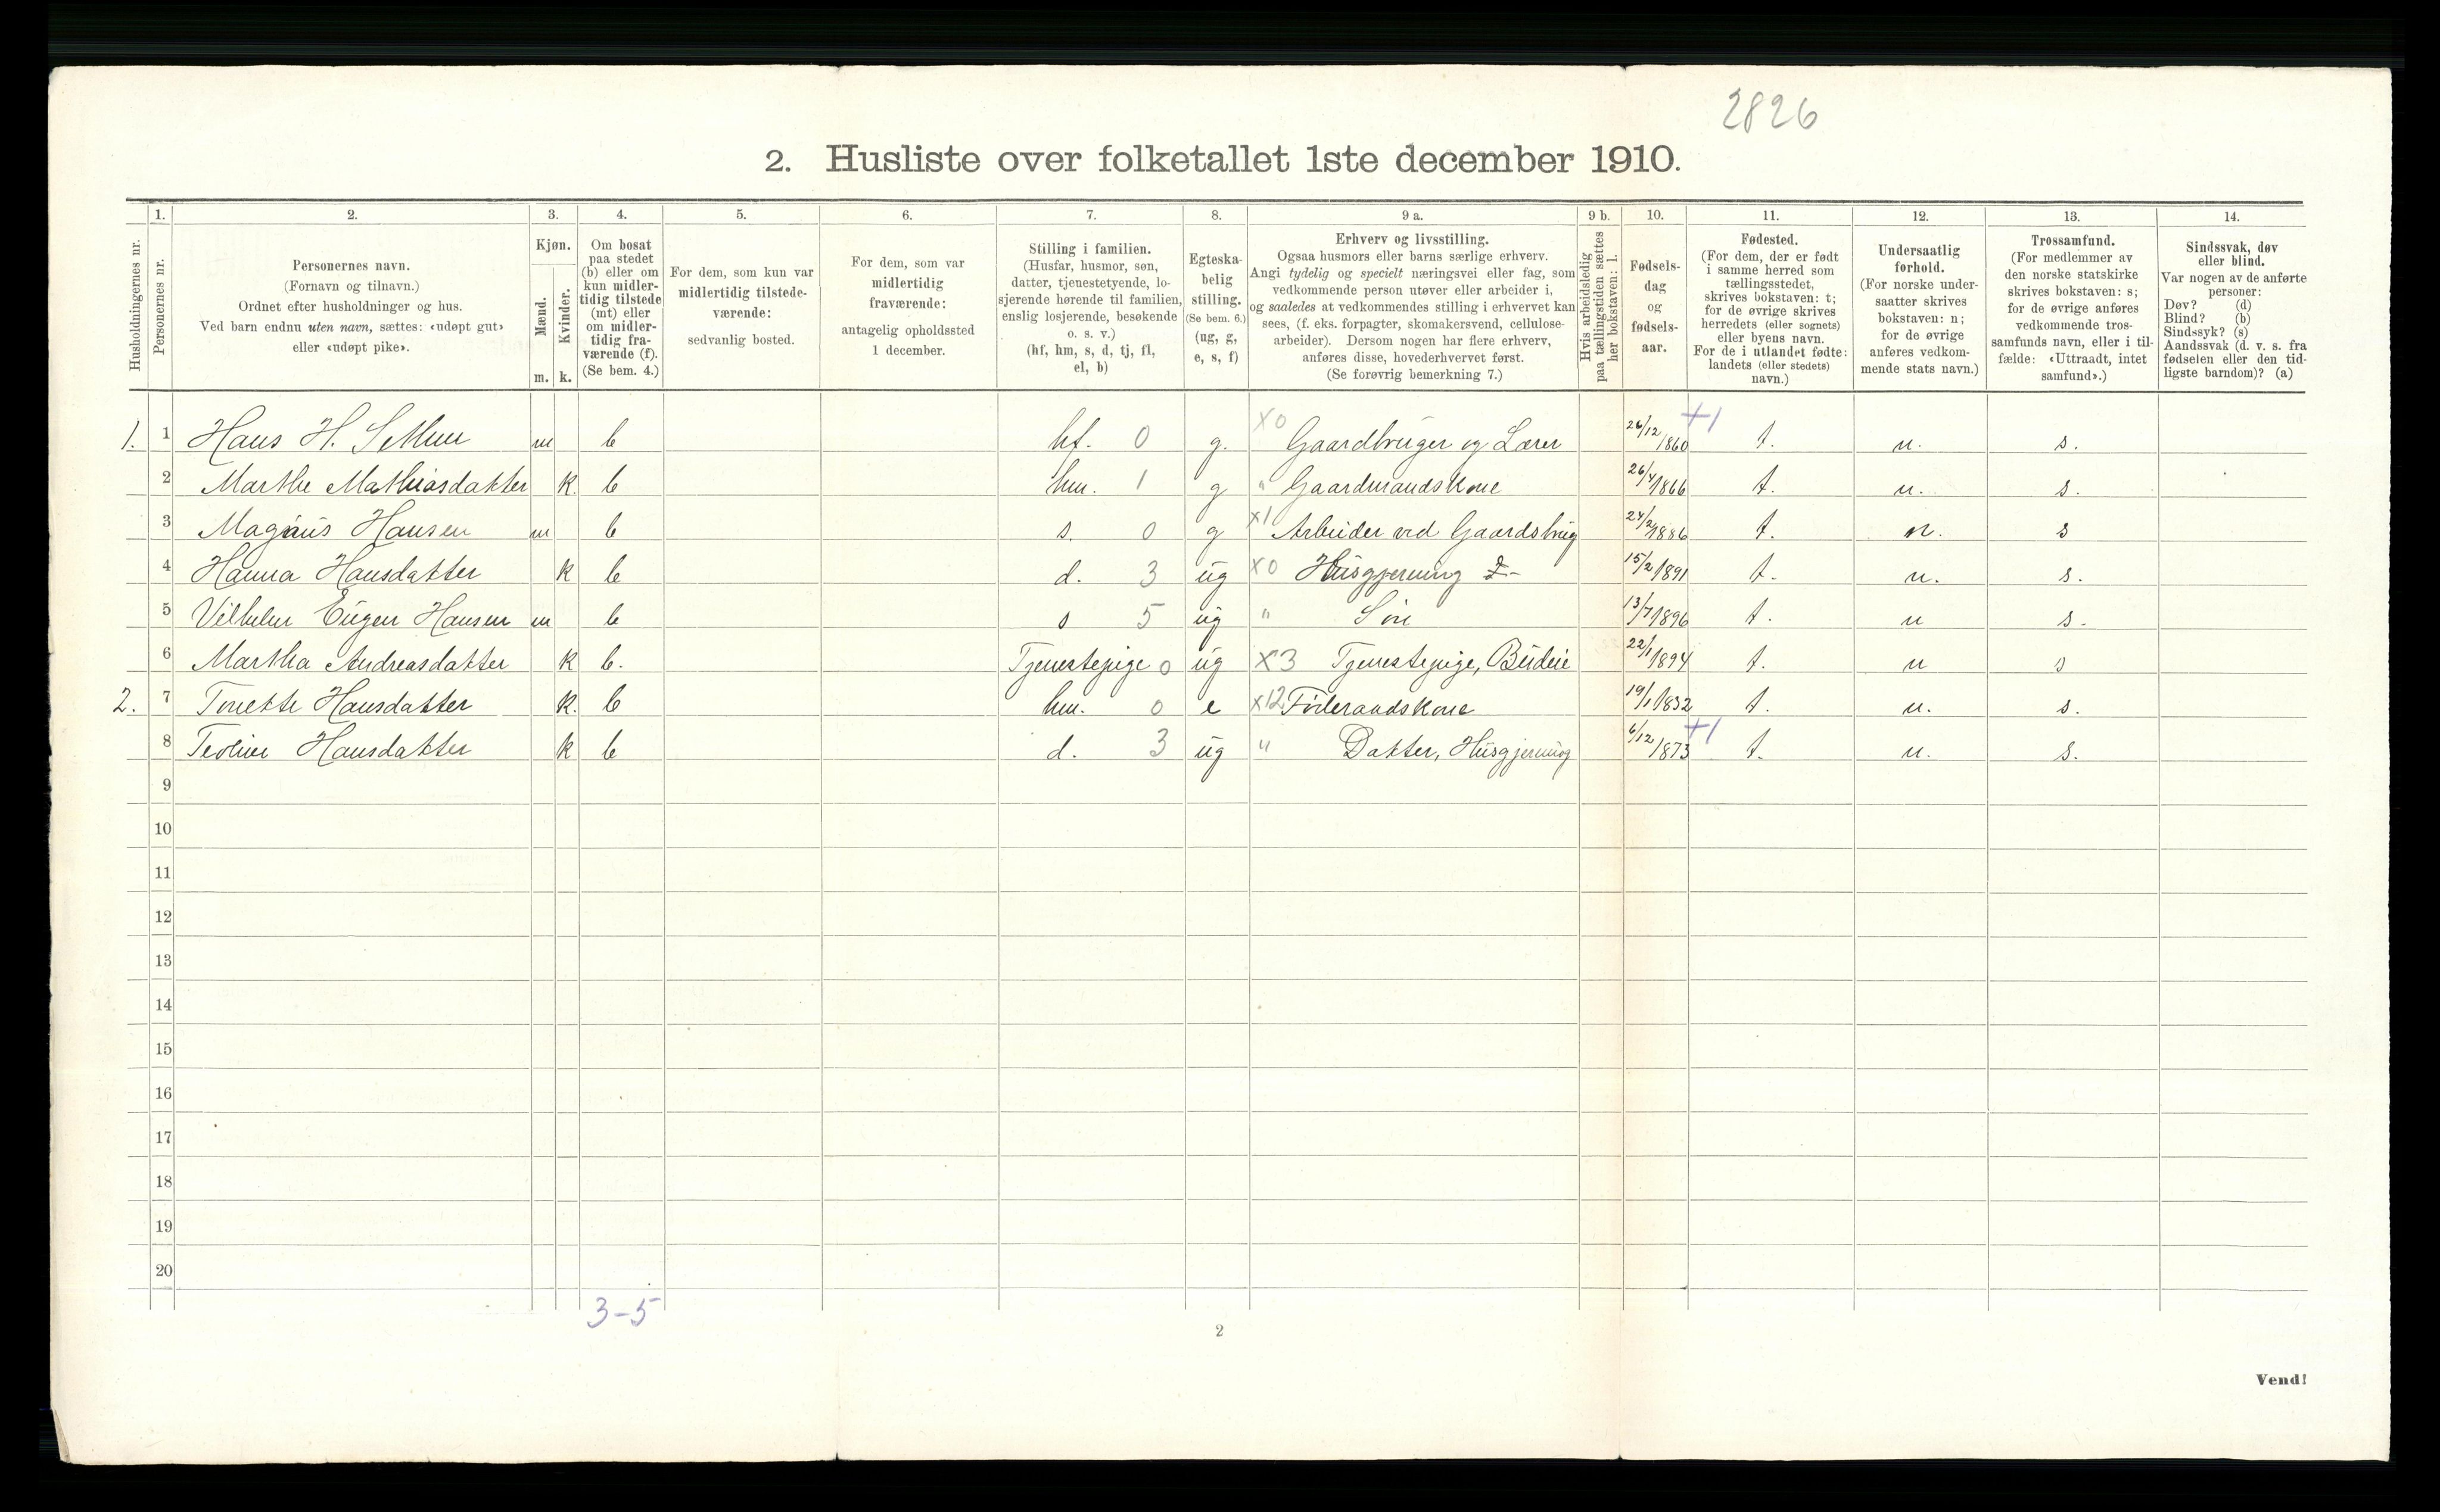 2826
2. Husliste over folketallet 1ste december 1910.
Husholdningernes nr.
1.
Personernes nr.
2.
Personernes navn.
(Fornavn og tilnavn.)
Ordnet efter husholdninger og hus.
Ved barn endnu uten navn, sættes: «udøpt gut»
eller «udøpt pike».
3.
Kjøn.
Mænd.
m.
Kvinder.
k.
4.
Om bosat
paa stedet
(b) eller om
kun midler-
tidig tilstede
(mt) eller
om midler-
tidig fra-
værende (f).
(Se bem. 4.)
5.
For dem, som kun var
midlertidig tilstede-
værende:
sedvanlig bosted.
6.
For dem, som var
midlertidig
fraværende:
antagelig opholdssted
1 december.
7.
Stilling i familien.
(Husfar, husmor, søn,
datter, tjenestetyende, lo-
sjerende hørende til familien,
enslig losjerende, besøkende
o. s. v.)
(hf, hm, s, d, tj, fl,
el, b)
8.
Egteska-
belig
stilling.
(Se bem. 6.)
(ug, g,
e, s, f)
9 a.
Erhverv og livsstilling.
Ogsaa husmors eller barns særlige erhverv.
Angi tydelig og specielt næringsvei eller fag, som
vedkommende person utøver eller arbeider i,
og saaledes at vedkommendes stilling i erhvervet kan
sees, (f. eks. forpagter, skomakersvend, cellulose-
arbeider). Dersom nogen har flere erhverv,
anføres disse, hovederhvervet først.
(Se forøvrig bemerkning 7.)
9 b.
Hvis arbeidsledig
paa tællingstiden sættes
her bokstaven: l.
10.
Fødsels-
dag
og
fødsels-
aar.
11.
Fødested.
(For dem, der er født
i samme herred som
tællingsstedet,
skrives bokstaven: t;
for de øvrige skrives
herredets (eller sognets)
eller byens navn.
For de i utlandet fødte:
landets (eller stedets)
navn.)
12.
Undersaatlig
forhold.
(For norske under-
saatter skrives
bokstaven: n;
for de øvrige
anføres vedkom-
mende stats navn.)
13.
Trossamfund.
(For medlemmer av
den norske statskirke
skrives bokstaven: s;
for de øvrige anføres
vedkommende tros-
samfunds navn, eller i til-
fælde: «Uttraadt, intet
samfund».)
14.
Sindssvak, døv
eller blind.
Var nogen av de anførte
personer:
Døv? (d)
Blind? (b)
Sindssyk? (s)
Aandssvak (d. v. s. fra
fødselen eller den tid-
ligste barndom)? (a)
1. 1 Hans H. m b hf. 0 g. X0 Gaardbruger og Lærer 26/12 1860 +1 t. n. s.
2 Marthe Mathiasdatter k. b hm. 1 g " Gaardmandskone 26/4 1866 t. n. s.
3 Magnus Hansen m b s. 0 g X1 Arbeider ved Gaardsbrug 24/2 1886 t. n. s
4 Hanna Hansdatter k b d. 3 ug X0 Husgjerning 15/2 1891 t. n. s.
5 Vilhelm Eugen Hansen m b s 5 ug " Søn 13/7 1896 t. n s.
6 Martha Andreasdatter k b. Tjenestepige 0 ug X3 Tjenestepige, Budeie 22/1 1894 t. n s
2. 7 Tonette Hansdatter k. b hm. 0 e X12 Føderaadskone 19/1 1832 t. n. s.
8 Teoline Hansdatter k b d. 3 ug " Datter, Husgjerning 6/12 1873 +1 t. n. s.
9
10
11
12
13
14
15
16
17
18
19
20
3-5
2
Vend!